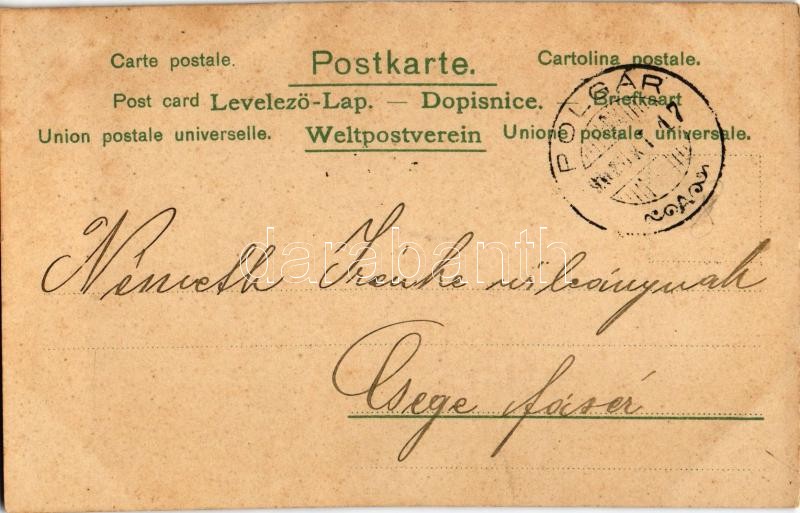 Carte postale. Postkarte. Cartolina postale.
Post card Levelezö-Lap. — Dopisnice. — Briefkaart
Union postale universelle. Weltpostverein Unione postale universale.
POLGÁR
17
A
darabanth
Németh Irenke úrleánynak
Csege